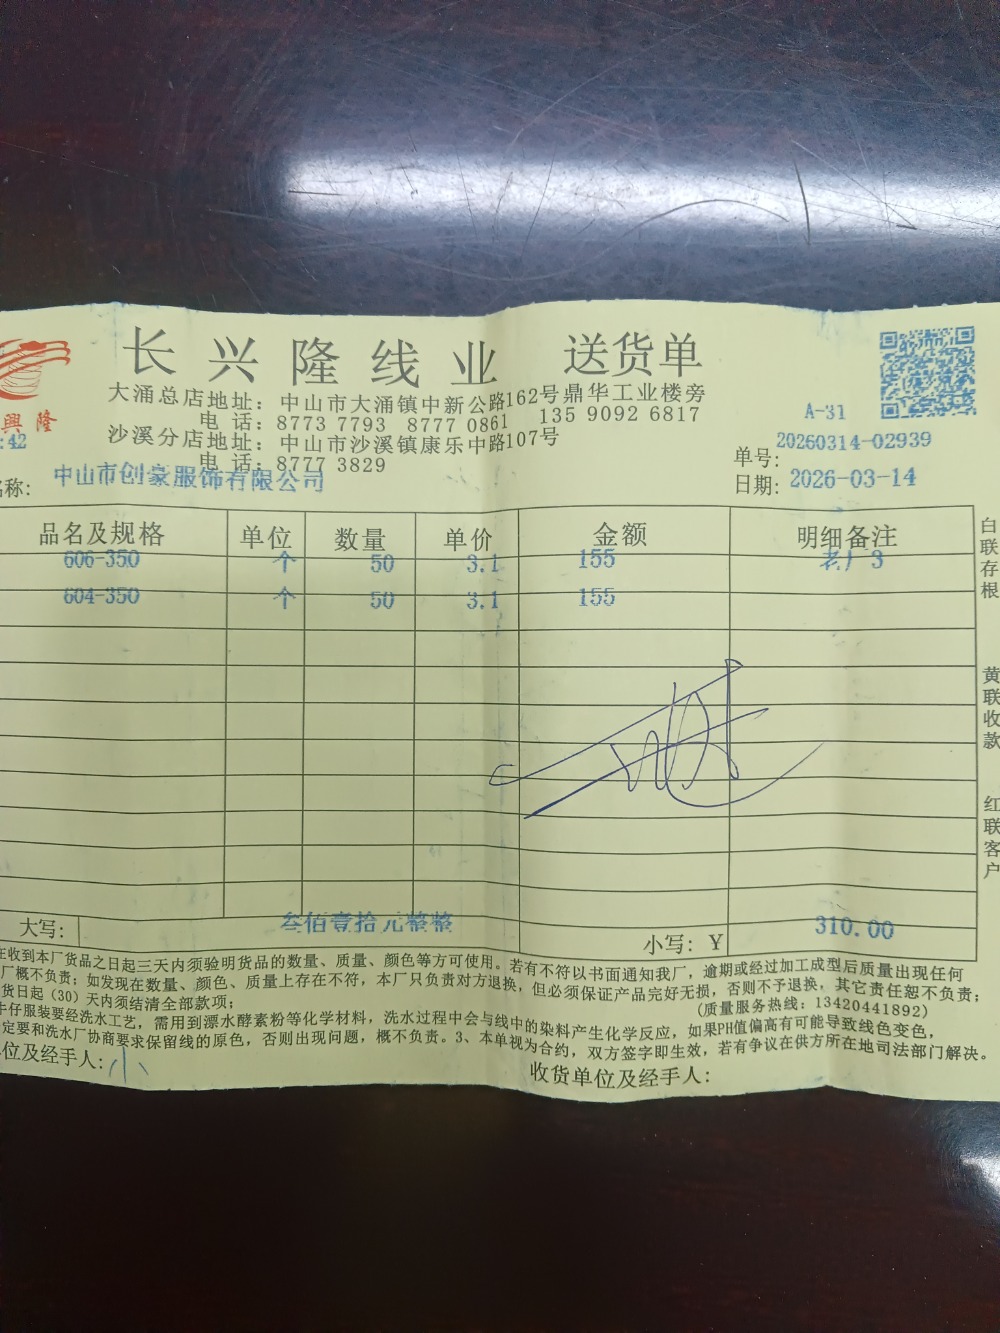 长兴隆线业 送货单
興隆
大涌总店地址：中山市大涌镇中新公路162号鼎华工业楼旁
电 话：8773 7793 8777 0861 135 9092 6817
A-31
沙溪分店地址：中山市沙溪镇康乐中路107号
电 话：8777 3829
:42
单号：20260314-02939
名称：中山市创豪服饰有限公司
日期：2026-03-14
品名及规格 单位 数量 单价 金额 明细备注
606-350 个 50 3.1 155 老厂3
604-350 个 50 3.1 155
白联存根
黄联收款
红联客户
大写：叁佰壹拾元整整 小写：Y 310.00
在收到本厂货品之日起三天内须验明货品的数量、质量、颜色等方可使用。若有不符以书面通知我厂，逾期或经过加工成型后质量出现任何
厂概不负责；如发现在数量、颜色、质量上存在不符，本厂只负责对方退换，但必须保证产品完好无损，否则不予退换，其它责任恕不负责；
货日起（30）天内须结清全部款项； （质量服务热线：13420441892）
牛仔服装要经洗水工艺，需用到漂水酵素粉等化学材料，洗水过程中会与线中的染料产生化学反应，如果PH值偏高有可能导致线色变色，
定要和洗水厂协商要求保留线的原色，否则出现问题，概不负责。3、本单视为合约，双方签字即生效，若有争议在供方所在地司法部门解决。
位及经手人：小 收货单位及经手人：